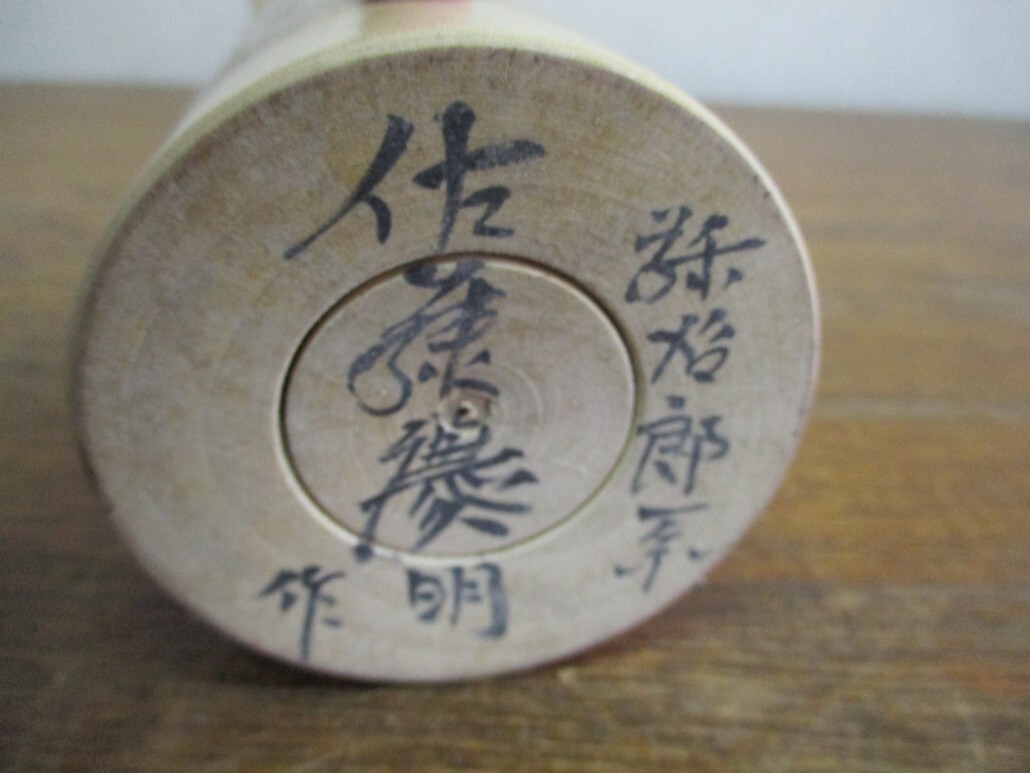 弥治郎系
佐藤慶明
作